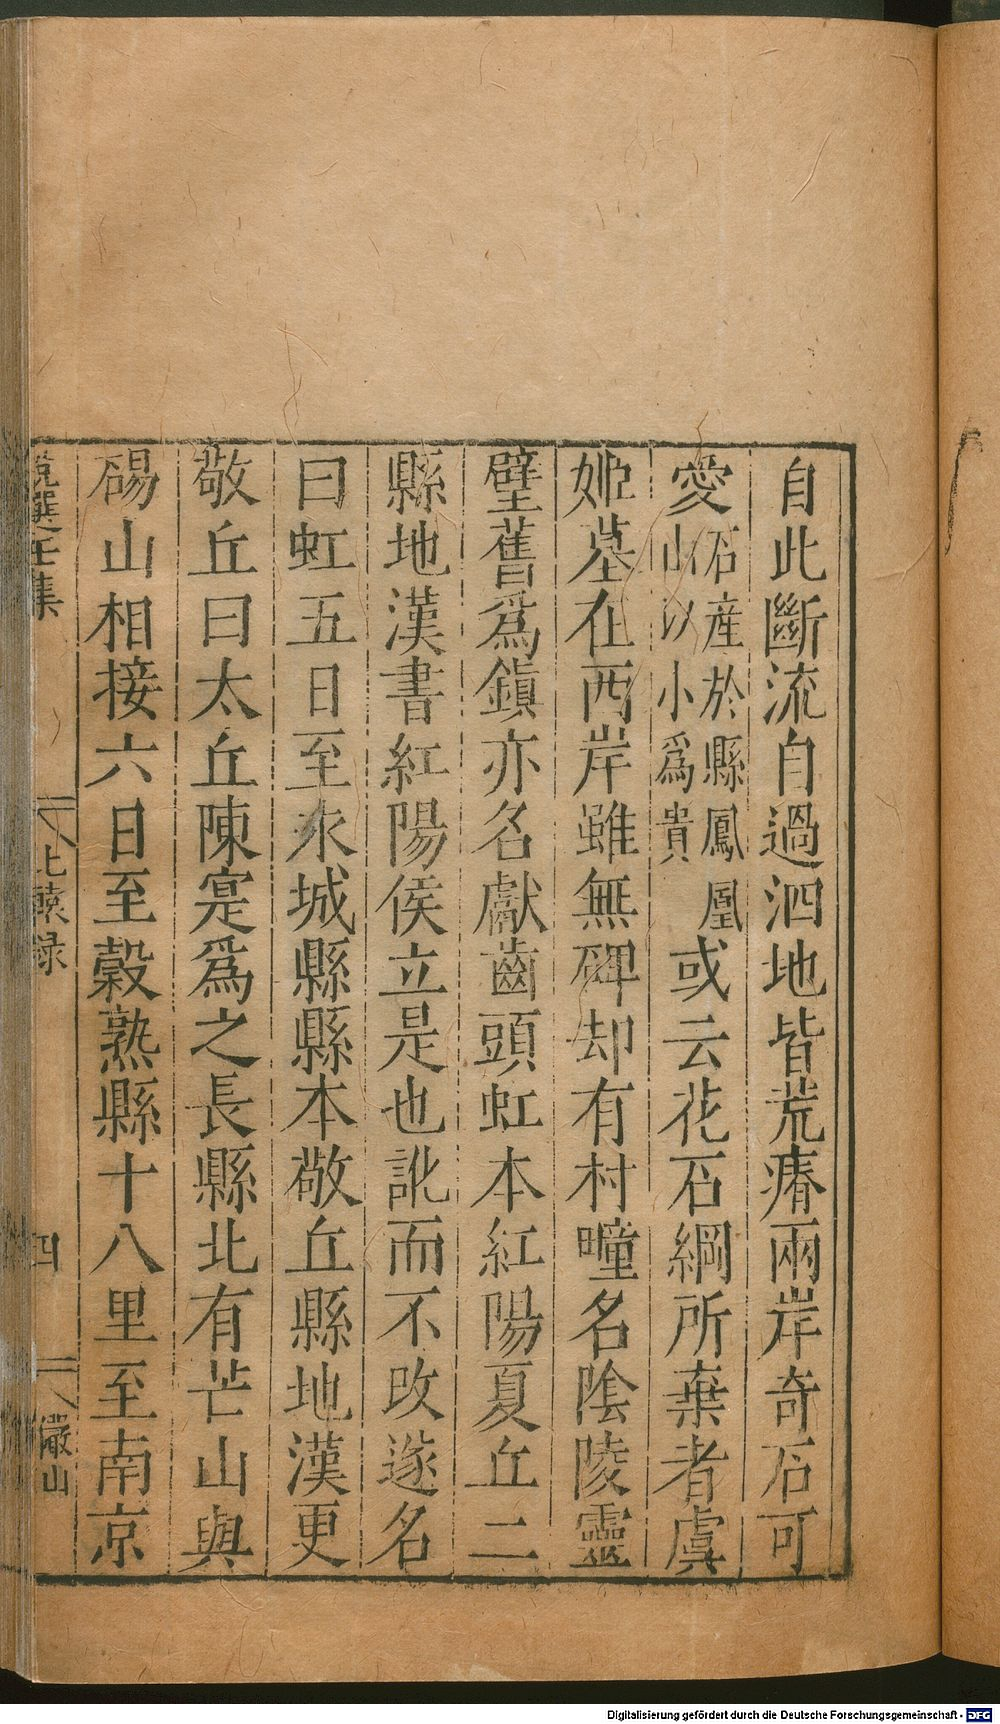 自此斷流自過泗地皆荒瘠兩岸奇石可
愛石產於縣鳳凰山以小爲貴或云花石綱所棄者虞
姬墓在西岸雖無碑却有村疃名陰陵靈
壁舊爲鎮亦名獻齒頭虹本紅陽夏丘二
縣地漢書紅陽侯立是也訛而不改遂名
曰虹五日至永城縣縣本敬丘縣地漢更
敬丘曰太丘陳寔爲之長縣北有芒山與
碭山相接六日至穀熟縣十八里至南京
說選壬集
北轅録
四
儼山
Digitalisierung gefördert durch die Deutsche Forschungsgemeinschaft - DFG